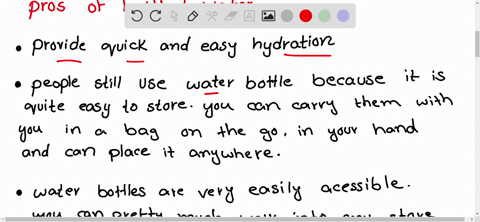 pros of
• provide quick and easy hydration
• people still use water bottle because it is
quite easy to store. you can carry them with
you in a bag on the go, in your hand
and can place it anywhere.
• water bottles are very easily acessible.
you can pretty much walk into any store